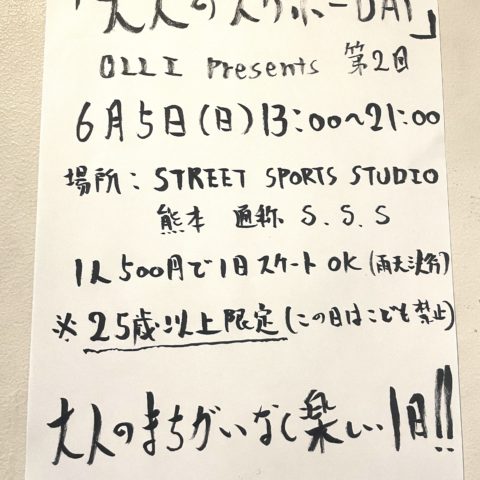 「大人のスケボーDAY」
OLLI Presents 第2回
6月5日(日)13:00〜21:00
場所: STREET SPORTS STUDIO
熊本 通称 S.S.S
1人500円で1日スケートOK(雨天決行)
※25歳以上限定(この日はこども禁止)
大人のまちがいなく楽しい1日!!